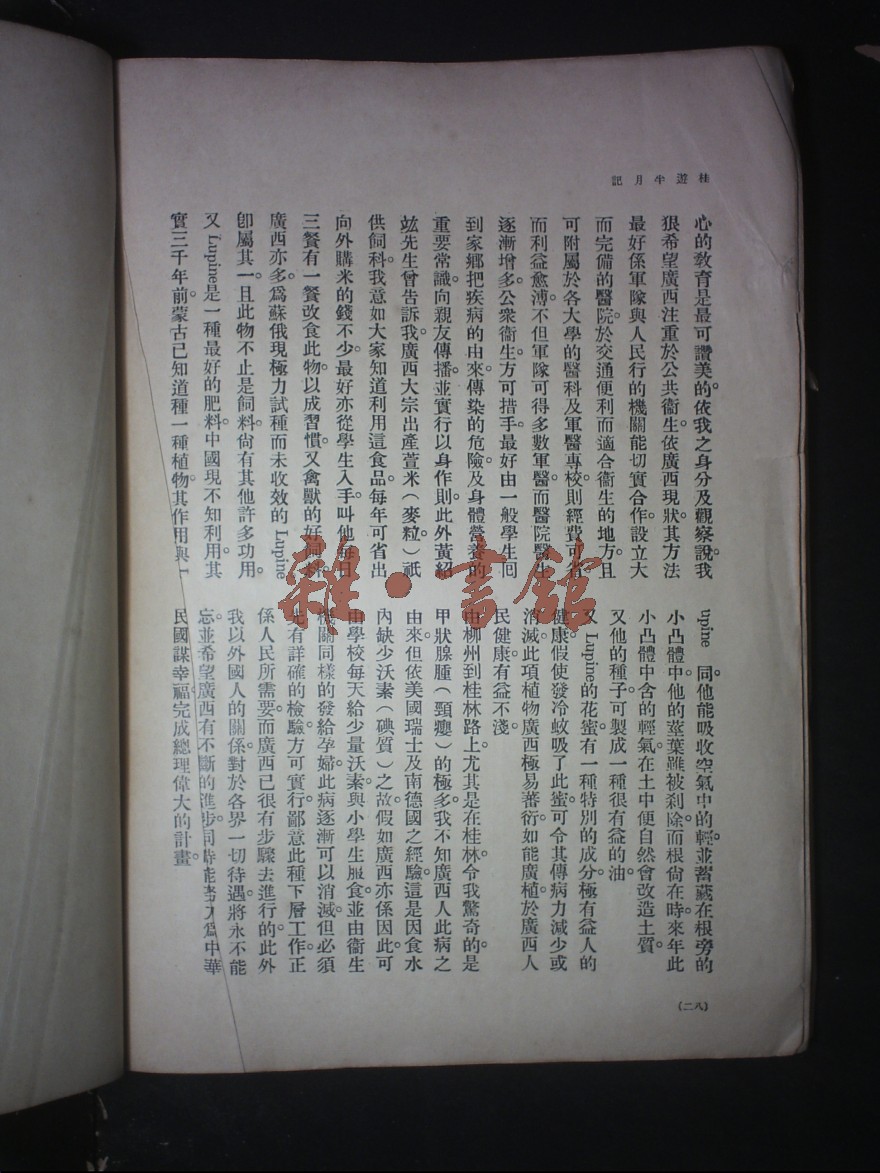 桂遊半月記
心的敎育是最可讚美的。依我之身分及觀察說。我
狠希望廣西注重於公共衞生。依廣西現狀。其方法
最好係軍隊與人民行的機關能切實合作。設立大
而完備的醫院。於交通便利而適合衞生的地方。且
可附屬於各大學的醫科及軍醫專校。則經費可省。
而利益愈溥。不但軍隊可得多數軍醫。而醫院醫生
逐漸增多。公衆衞生。方可措手。最好由一般學生回
到家鄉把疾病的由來。傳染的危險。及身體營養的
重要常識。向親友傳播。並實行以身作則。此外黃紹
竑先生曾告訴我。廣西大宗出產萱米(麥粒)祇
供飼料。我意如大家知道利用這食品。每年可省出
向外購米的錢不少。最好亦從學生入手。叫他每日
三餐有一餐改食此物。以成習慣。又禽獸的好飼料。
廣西亦多。爲蘇俄現極力試種而未收效的 Lupine
卽屬其一。且此物不止是飼料。尙有其他許多功用。
又 Lupine 是一種最好的肥料。中國現不知利用。其
實三千年前。蒙古已知道種一種植物。其作用與 l
upine 同。他能吸收空氣中的輕。並蓄藏在根旁的
小凸體中。他的莖葉雖被剎除。而根尙在時。來年此
小凸體中含的輕氣。在土中便自然會改造土質。
又他的種子。可製成一種很有益的油。
又 Lupine 的花蜜。有一種特別的成分。極有益人的
健康。假使發冷蚊吸了此蜜。可令其傳病力減少或
消滅。此項植物廣西極易蕃衍。如能廣植。於廣西人
民健康。有益不淺。
由柳州到桂林路上。尤其是在桂林。令我驚奇的。是
甲狀腺腫(頸癭)的極多。我不知廣西人此病之
由來。但依美國瑞士及南德國之經驗。這是因食水
內缺少沃素(碘質)之故。假如廣西亦係因此。可
由學校每天給少量沃素。與小學生服食。並由衞生
機關同樣的發給孕婦。此病逐漸可以消滅。但必須
先有詳確的檢驗。方可實行。鄙意此種下層工作。正
係人民所需要。而廣西已很有步驟去進行的。此外
我以外國人的關係。對於各界一切待遇。將永不能
忘。並希望廣西有不斷的進步。同時能努力爲中華
民國謀幸福。完成總理偉大的計畫。
(八二)
雜·書館